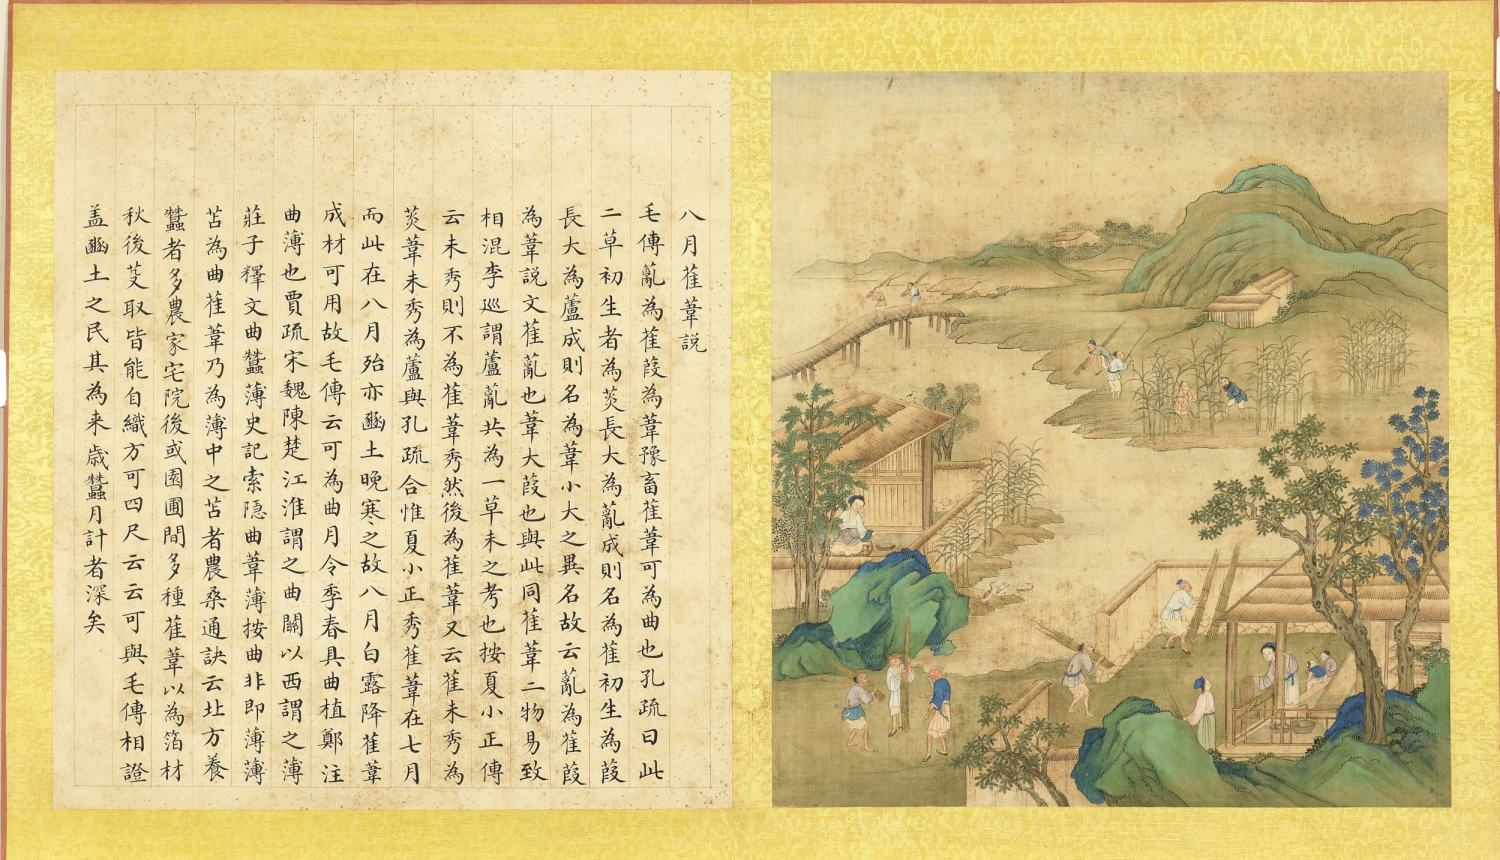 八月萑葦説
毛傳薍為萑葭為葦豫畜萑葦可為曲也孔疏曰此
二草初生者為菼長大為薍成則名為萑初生為葭
長大為蘆成則名為葦小大之異名故云薍為萑葭
為葦説文萑薍也葦大葭也與此同萑葦二物易致
相混李巡謂蘆薍共為一草未之考也按夏小正傳
云未秀則不為萑葦秀然後為萑葦又云萑未秀為
菼葦未秀為蘆與孔疏合惟夏小正秀萑葦在七月
而此在八月殆亦豳土晚寒之故八月白露降萑葦
成材可用故毛傳云可為曲月令季春具曲植鄭注
曲薄也賈疏宋魏陳楚江淮謂之曲關以西謂之薄
莊子釋文曲蠶薄史記索隱曲葦薄按曲非即薄薄
苫為曲萑葦乃為薄中之苫者農桑通訣云北方養
蠶者多農家宅院後或園圃間多種萑葦以為箔材
秋後芟取皆能自織方可四尺云云可與毛傳相證
盖豳土之民其為来歳蠶月計者深矣